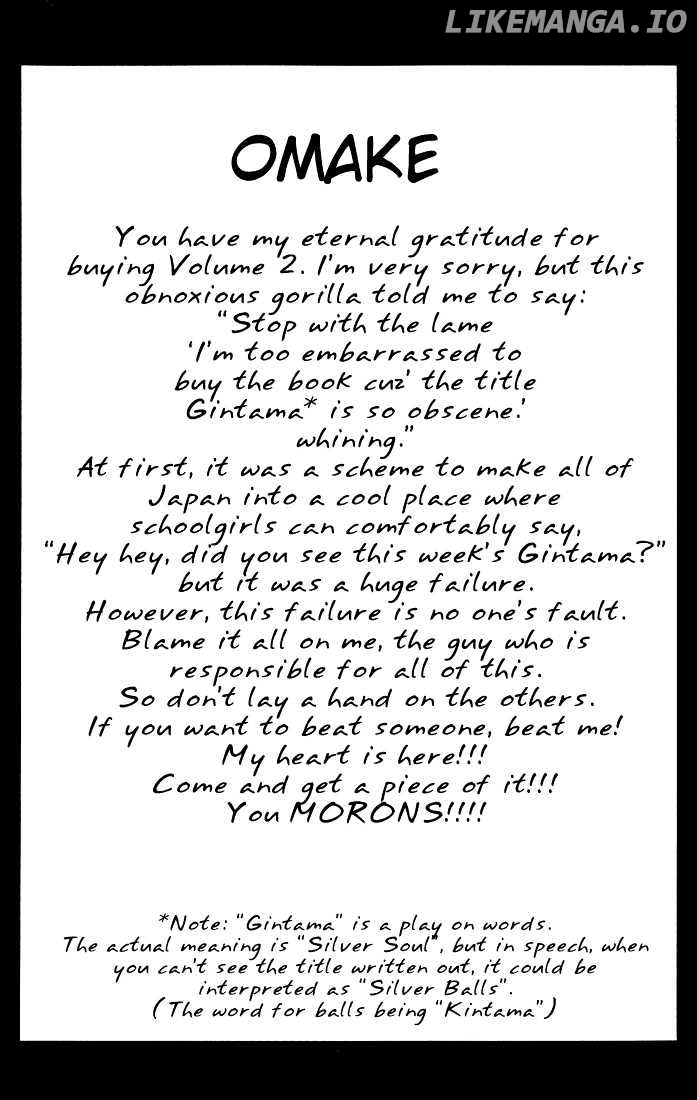 LIKEMANGA.IO
OMAKE
You have my eternal gratitude for
buying Volume 2. I'm very sorry, but this
obnoxious gorilla told me to say:
"Stop with the lame
'I'm too embarrassed to
buy the book cuz' the title
Gintama* is so obscene.'
whining."
At first, it was a scheme to make all of
Japan into a cool place where
schoolgirls can comfortably say,
"Hey hey, did you see this week's Gintama?"
but it was a huge failure.
However, this failure is no one's fault.
Blame it all on me, the guy who is
responsible for all of this.
So don't lay a hand on the others.
If you want to beat someone, beat me!
My heart is here!!!
Come and get a piece of it!!!
You MORONS!!!!
*Note: "Gintama" is a play on words.
The actual meaning is "Silver Soul", but in speech, when
you can't see the title written out, it could be
interpreted as "Silver Balls".
(The word for balls being "Kintama")